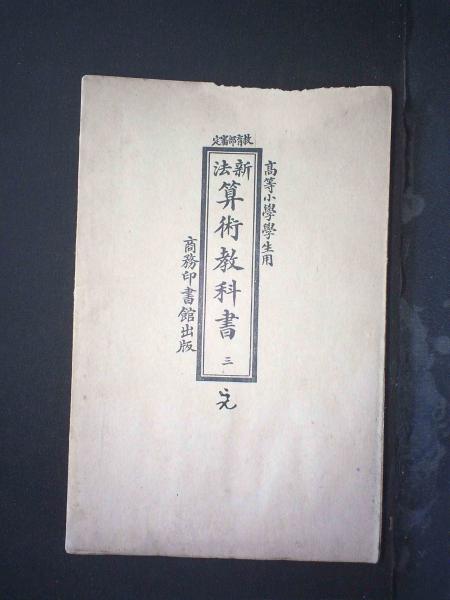 教育部審定
高等小學學生用
新法
算術教科書 三
商務印書館出版